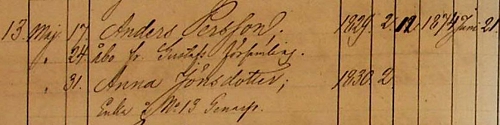 13. Maj 17. Anders Persson, 1829. 2. 12. 1874 Juni 21.
" 24. åbo fr. Gustaf
" 31. Anna Jönsdotter; 1830. 2
Enka f. No 13 Genarp.